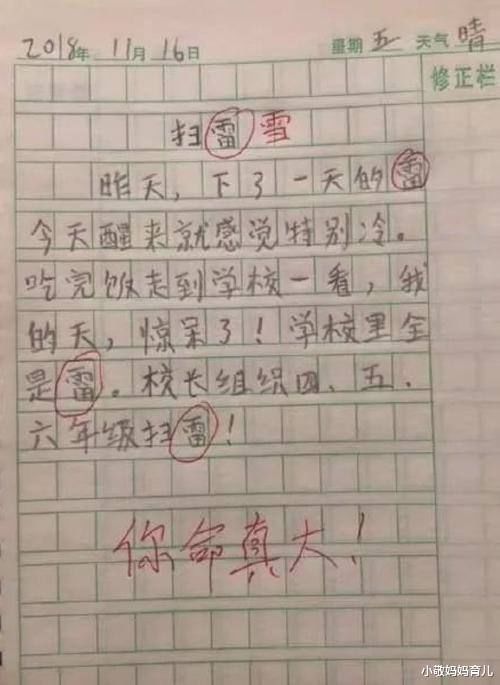 2018年 11月 16日 星期 五 天气 晴
修正栏
扫雷 雪
昨天，下了一天的雷
今天醒来就感觉特别冷。
吃完饭走到学校一看，我
的天，惊呆了！学校里全
是雷。校长组织四、五、
六年级扫雷！
你命真大！
小敬妈妈育儿